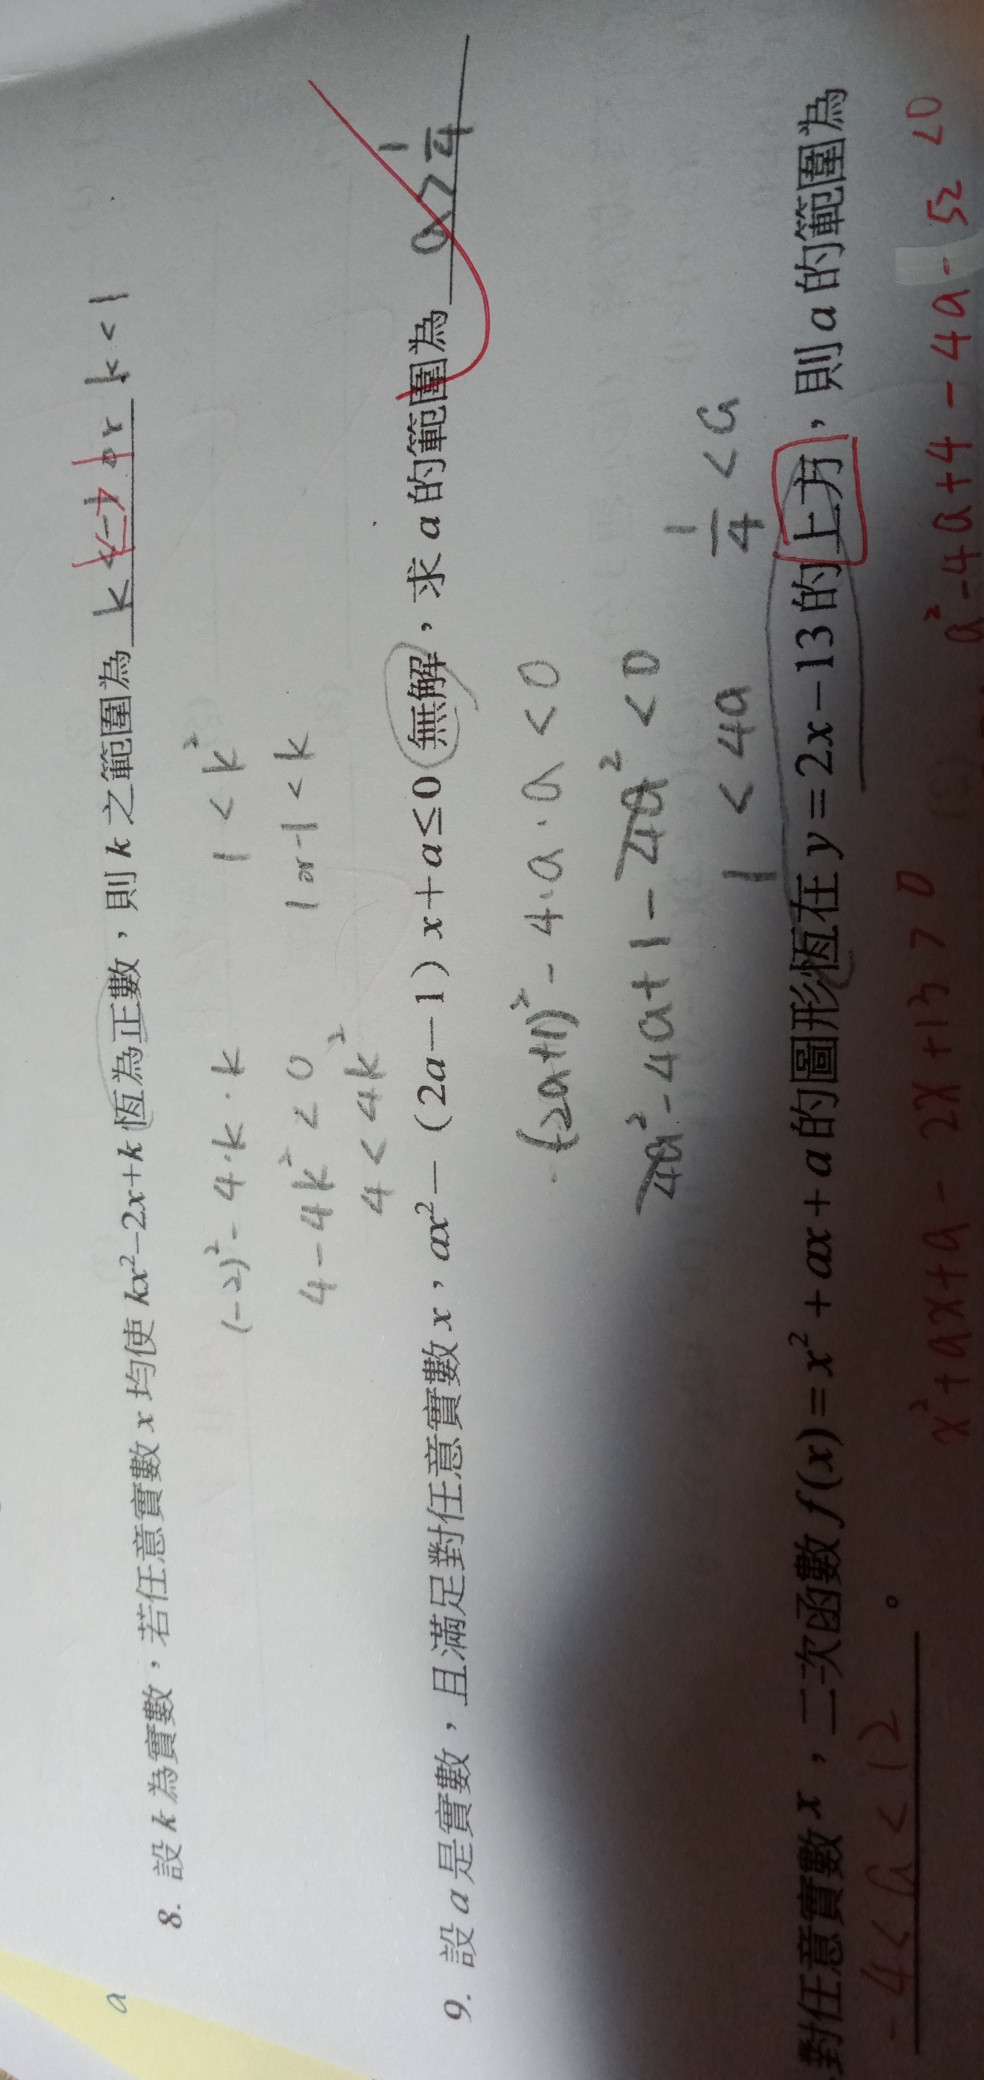 a
8. 設 k 為實數，若任意實數 x 均使 kx²−2x+k 恆為正數，則 k 之範圍為 k<-1 or k<1
(-2)²-4·k·k
4-4k²<0
4<4k²
1<k²
1 or -1<k
9. 設 a 是實數，且滿足對任意實數 x，ax²−（2a−1）x+a≤0 無解，求 a 的範圍為 a>1/4
(-2a+1)²-4·a·a<0
4a²-4a+1-4a²<0
1<4a
1/4<a
對任意實數 x，二次函數 f(x)=x²+ax+a 的圖形恆在 y=2x−13 的上方，則 a 的範圍為
-4<a<12 。
x²+ax+a-2x+13>0
a²-4a+4-4a-52<0